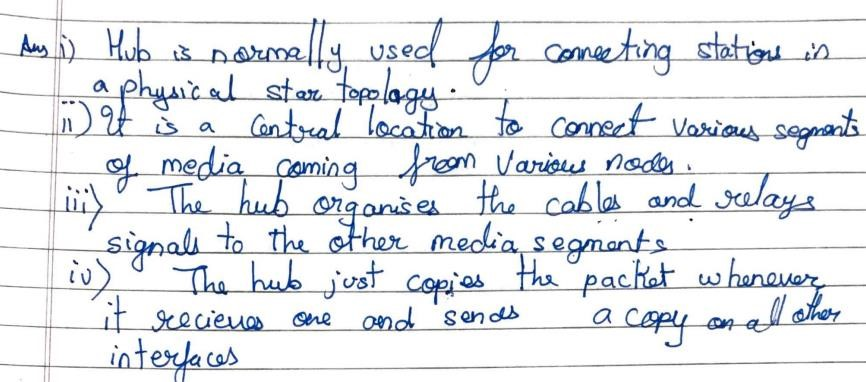 Ans i) Hub is normally used for connecting stations in
a physical star topology.
ii) It is a Central location to connect various segments
of media coming from various nodes.
iii) The hub organises the cables and relays
signals to the other media segments
iv) The hub just copies the packet whenever
it recieves one and sends a copy on all other
interfaces